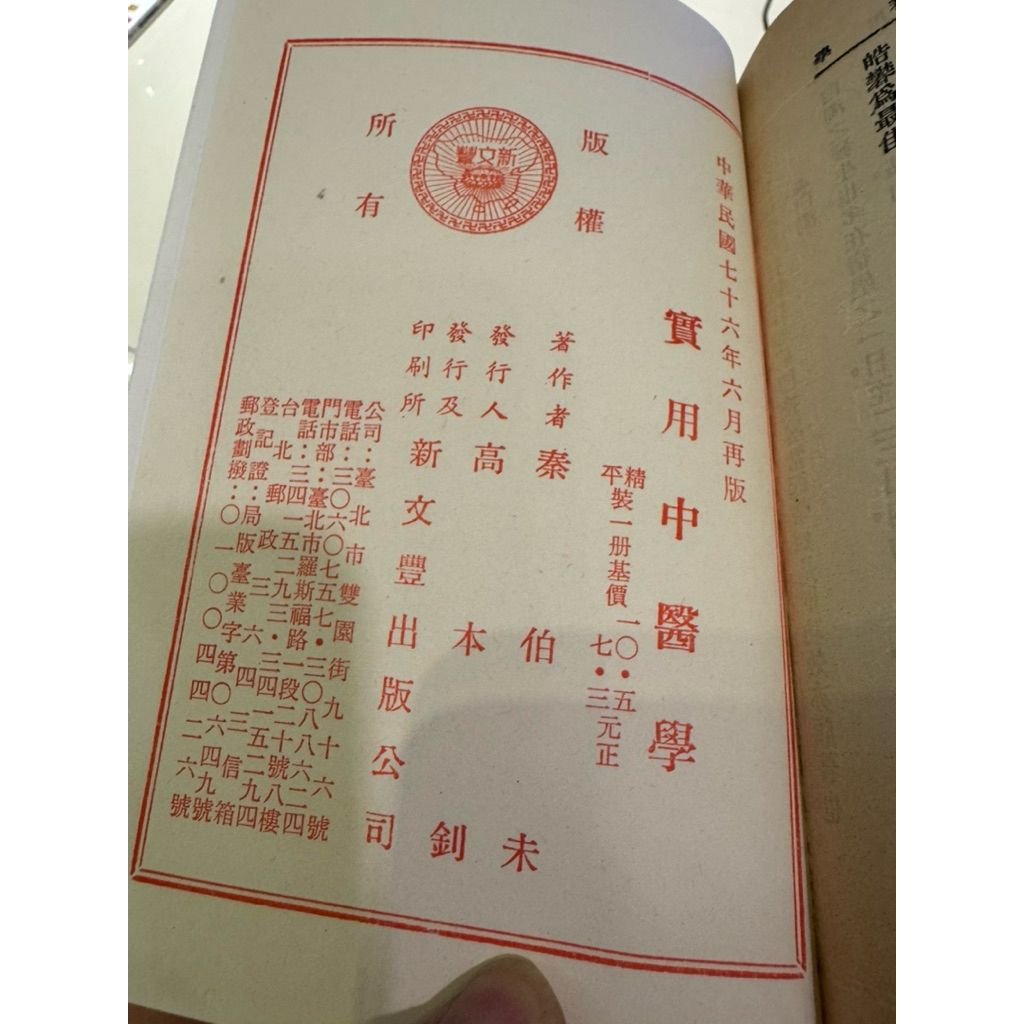 皓礬爲最佳
學
中華民國七十六年六月再版
實用中醫學
精平裝一册基價一〇・五七・三元正
著作者 秦伯未
發行人 高本釗
發行及印刷所 新文豐出版公司
公司:臺北市雙園街九十六號
電話:三〇六〇七五七・三〇八八六二四
門市部:臺北市羅斯福路一段二十號八樓
電話:三四一五二九三・三四一五二九四
台北郵政三六四三信箱
登記證:局版臺業字第〇六四九號
郵政劃撥:〇一〇〇四四二六號
版權
新文豐
所有